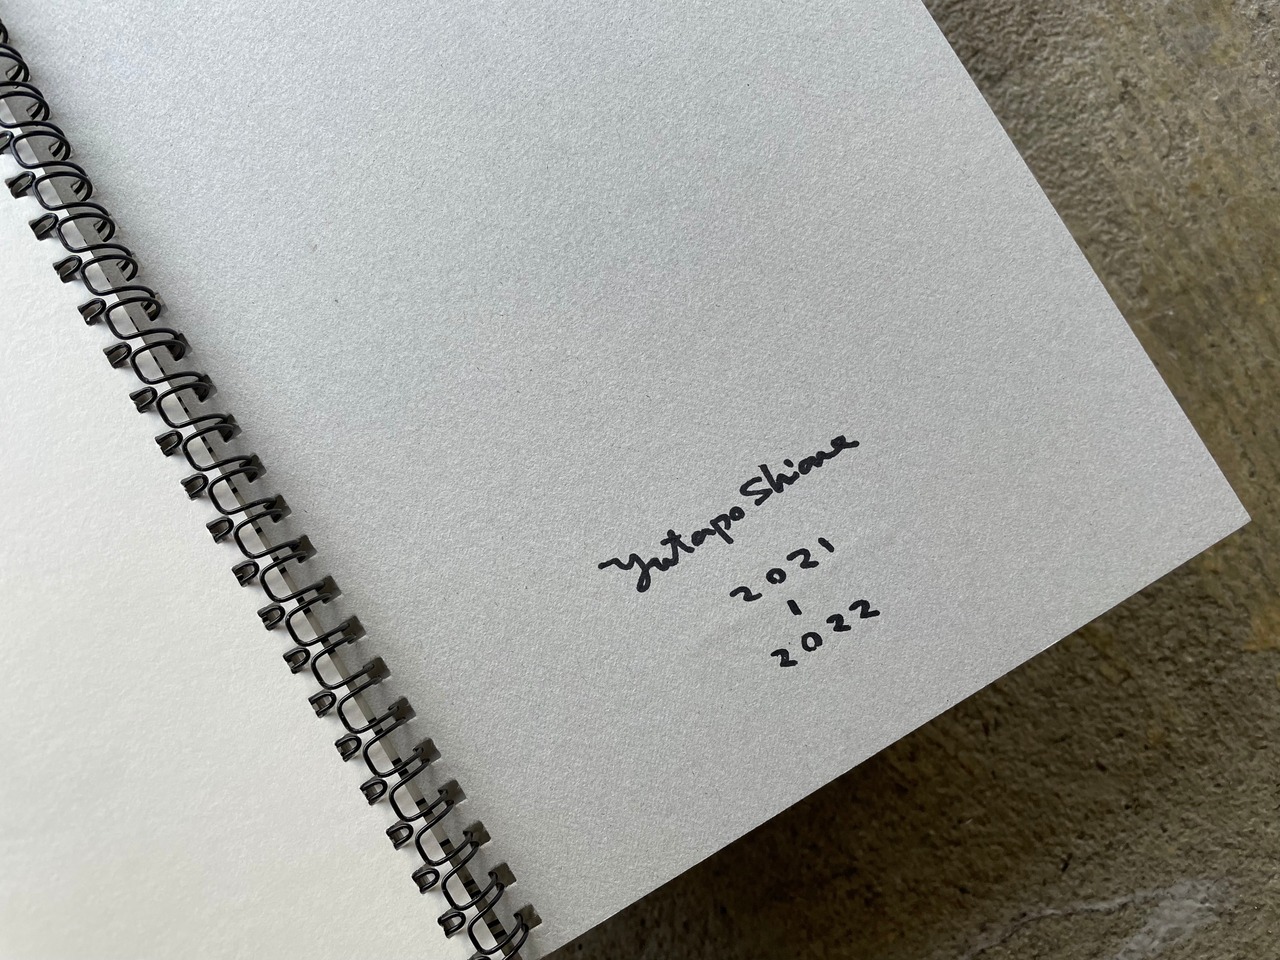 Yutapo Shione
2021
|
2022